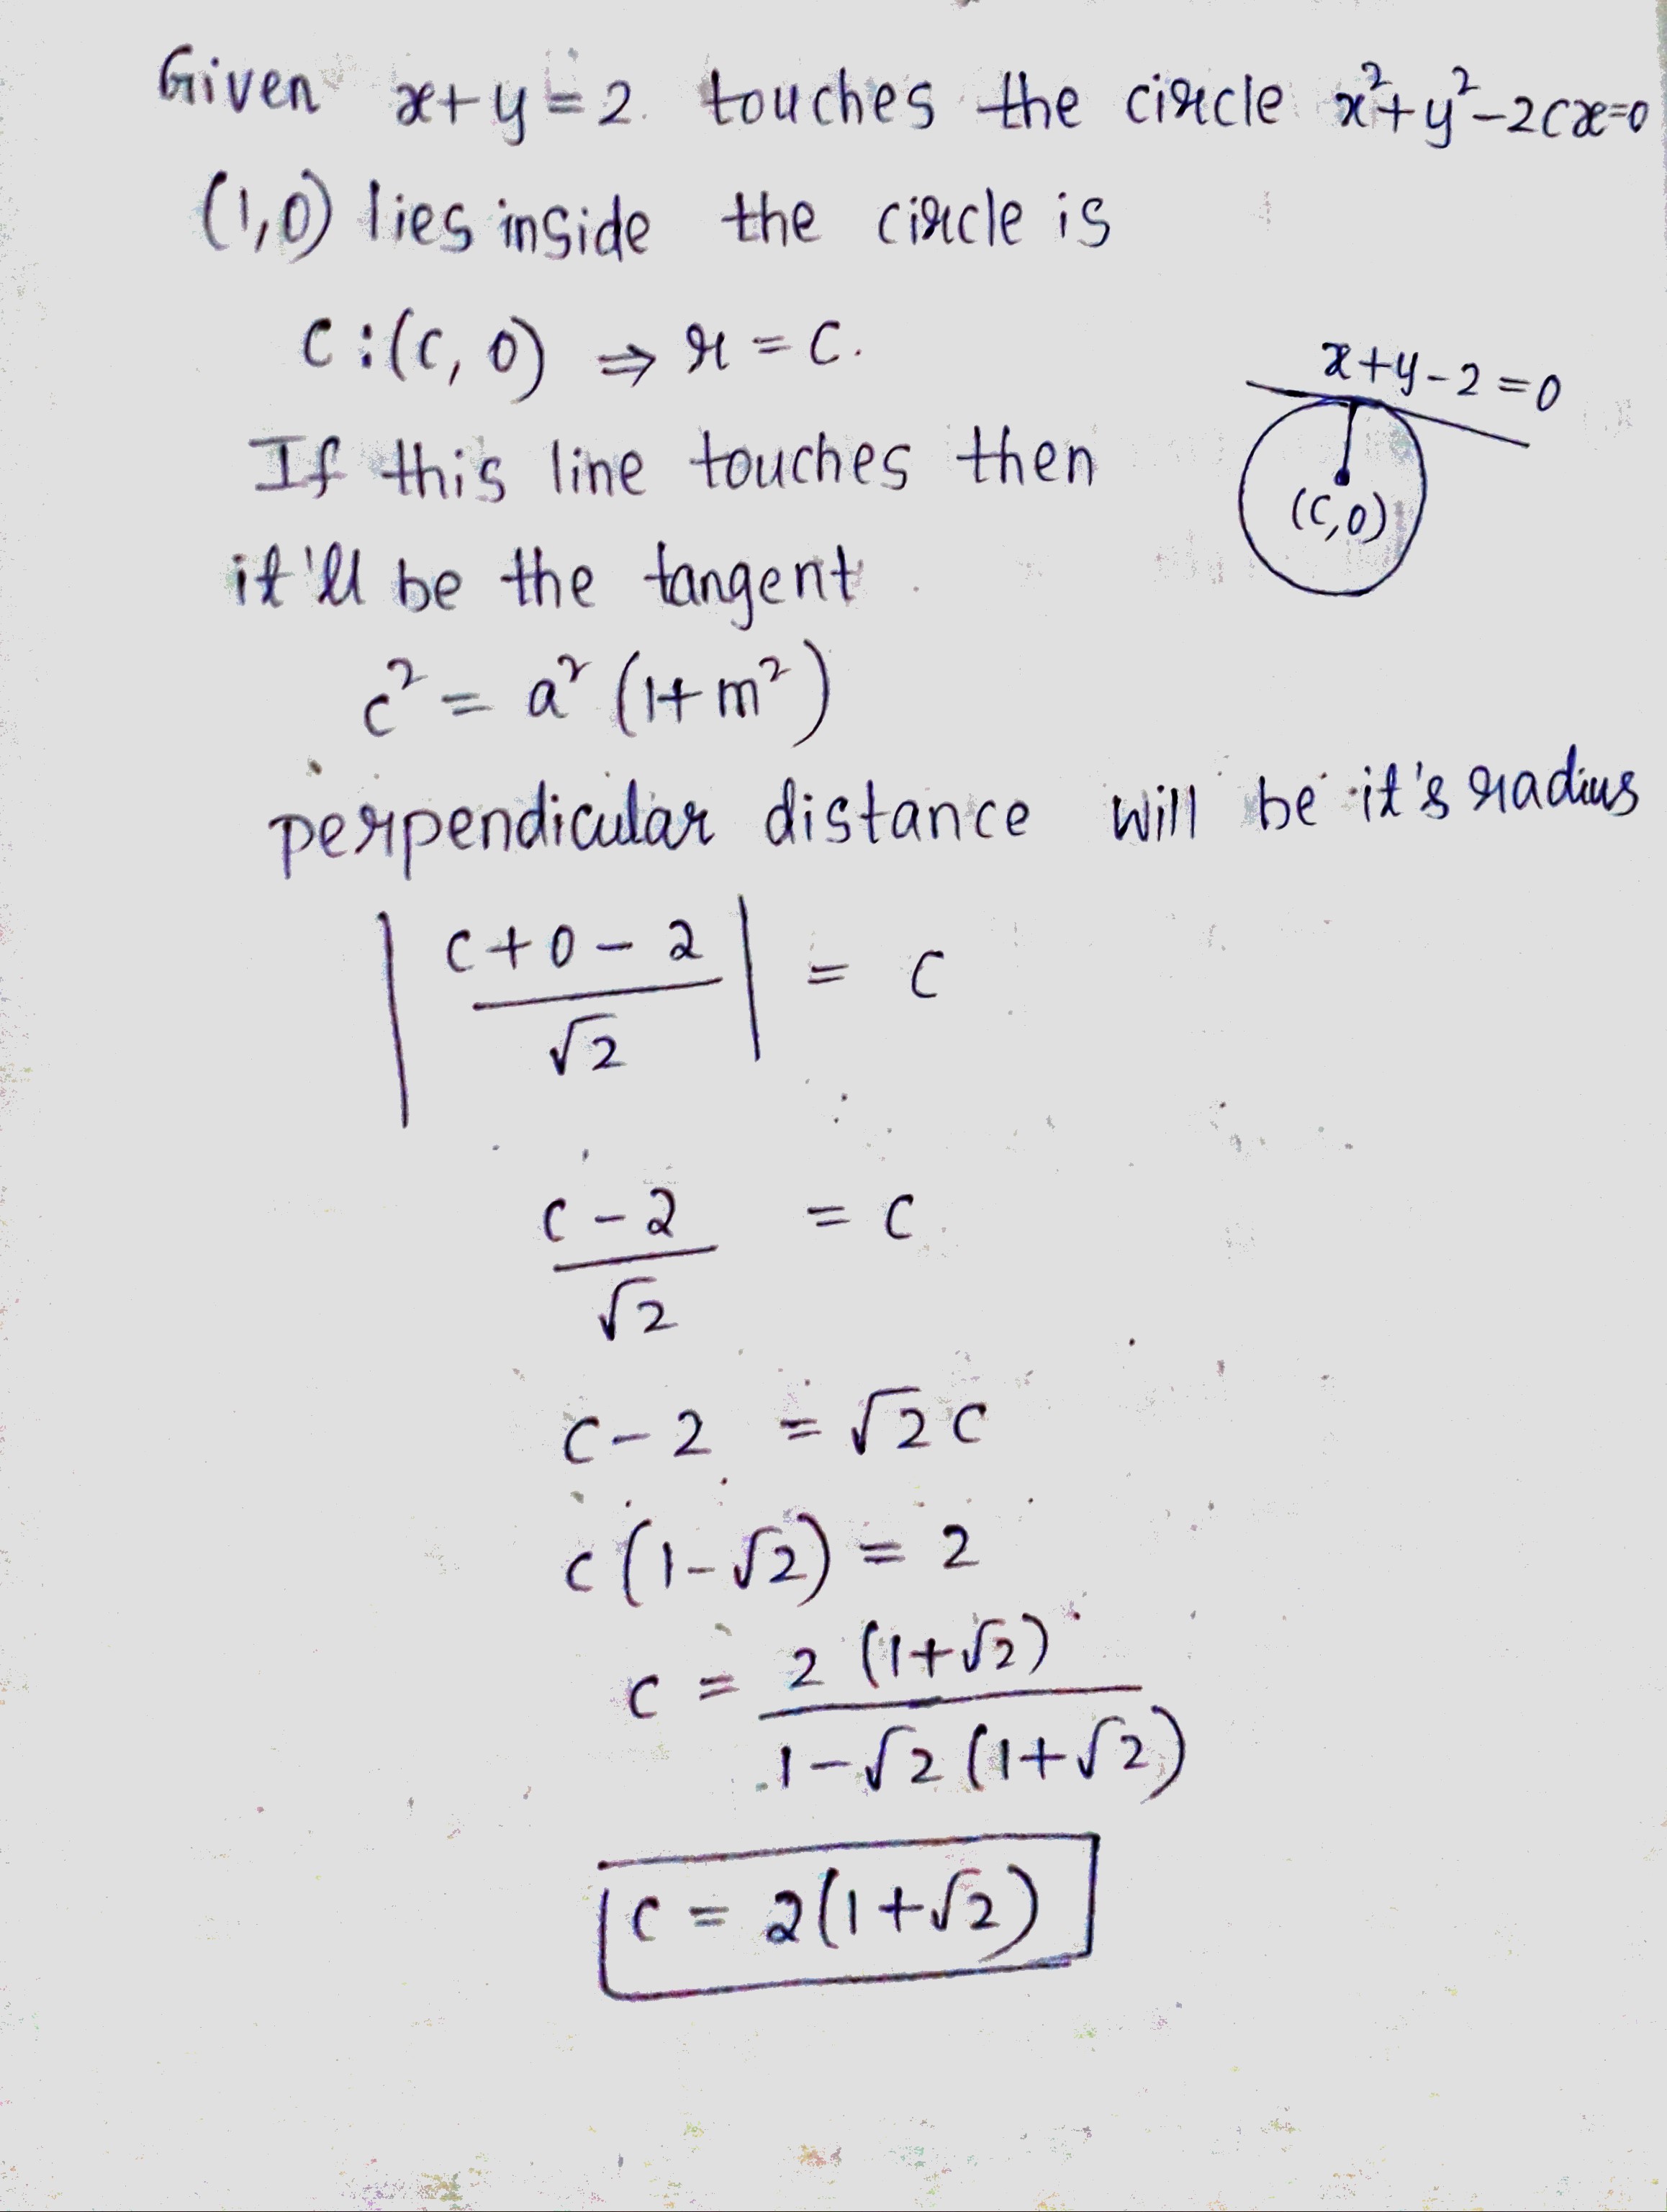 Given x+y=2. touches the circle x²+y²-2cx=0
(1,0) lies inside the circle is
C:(C, 0) ⇒ r = C.
x+y-2=0
(C,0)
If this line touches then
it'll be the tangent
c² = a² (1+m²)
perpendicular distance will be it's radius
|(c+0-2)/√2| = c
(c-2)/√2 = c
c-2 = √2 c
c(1-√2) = 2
c = 2 (1+√2)/1-√2 (1+√2)
c = 2(1+√2)